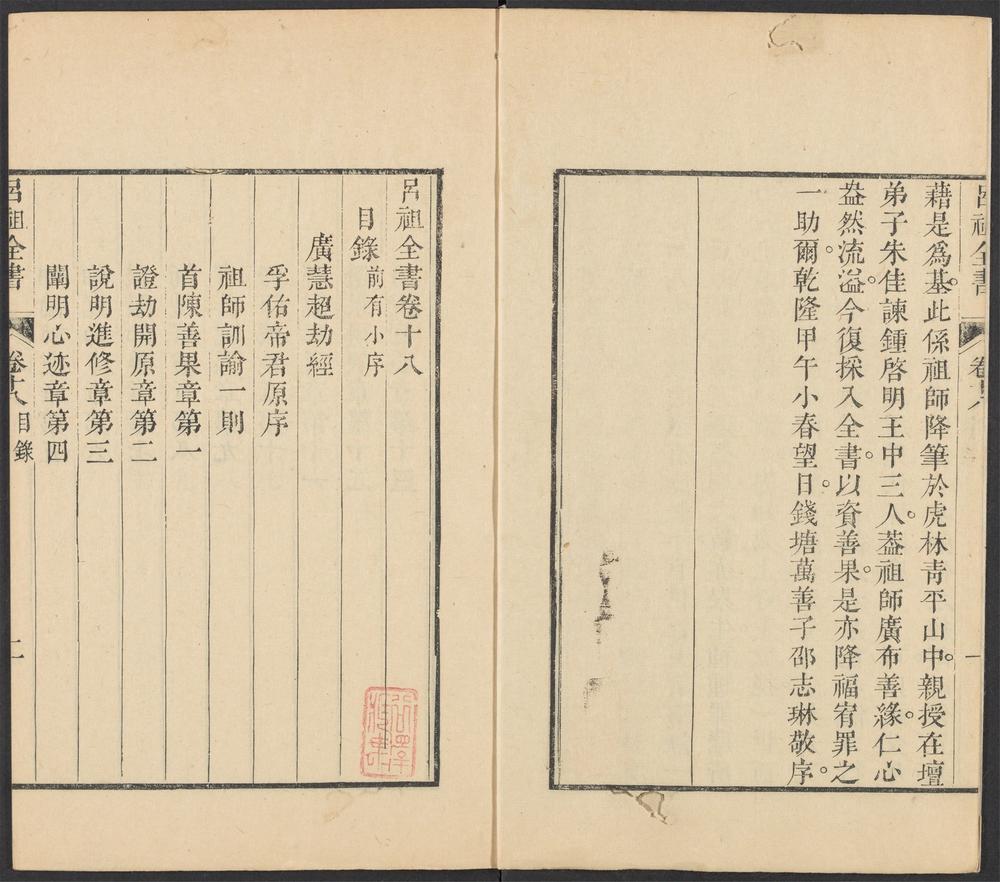 呂祖全書 卷十八 一
藉是爲基。此係祖師降筆於虎林青平山中。親授在壇
弟子朱佳諫鍾啓明王中三人。葢祖師廣布善緣。仁心
盎然流溢。今復採入全書。以資善果。是亦降福宥罪之
一助爾。乾隆甲午小春望日。錢塘萬善子邵志琳敬序。
呂祖全書卷十八
目錄 前有小序
廣慧超劫經
孚佑帝君原序
祖師訓諭一則
首陳善果章第一
證劫開原章第二
說明進修章第三
闡明心迹章第四
呂祖全書 卷十八 目錄 二